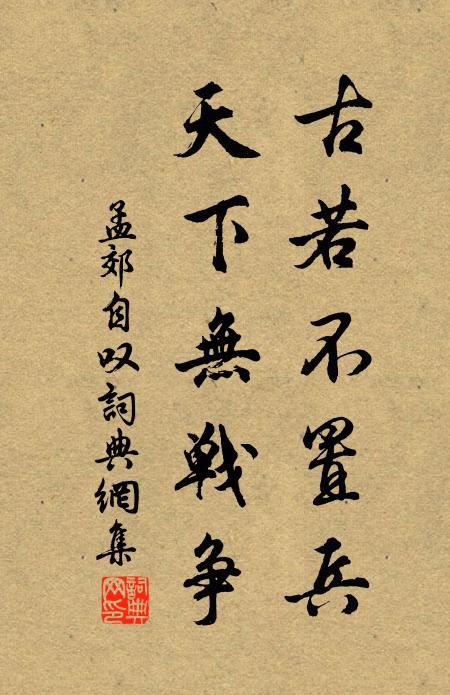 古若不置兵
天下無戦争
孟郊自叹詞典網集
詞典網印